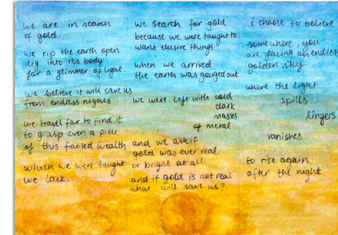 we are in search
of gold.
we rip the earth open
dig into its body
for a glimmer of light.
we believe it will save us
from endless nights
we travel far to find it
to grasp even a piece
of this fabled wealth
which we were taught
we lack.
we search for gold
because we were taught to
want elusive things
when we arrived
the earth was gouged out
we were left with cold
dark
masses
of metal
and we ask if
gold was ever real
or bright at all
and if gold is not real
what will save us?
i choose to believe
somewhere, you
are facing an endless
golden sky
where the light
spills
lingers
vanishes
to rise again
after the night